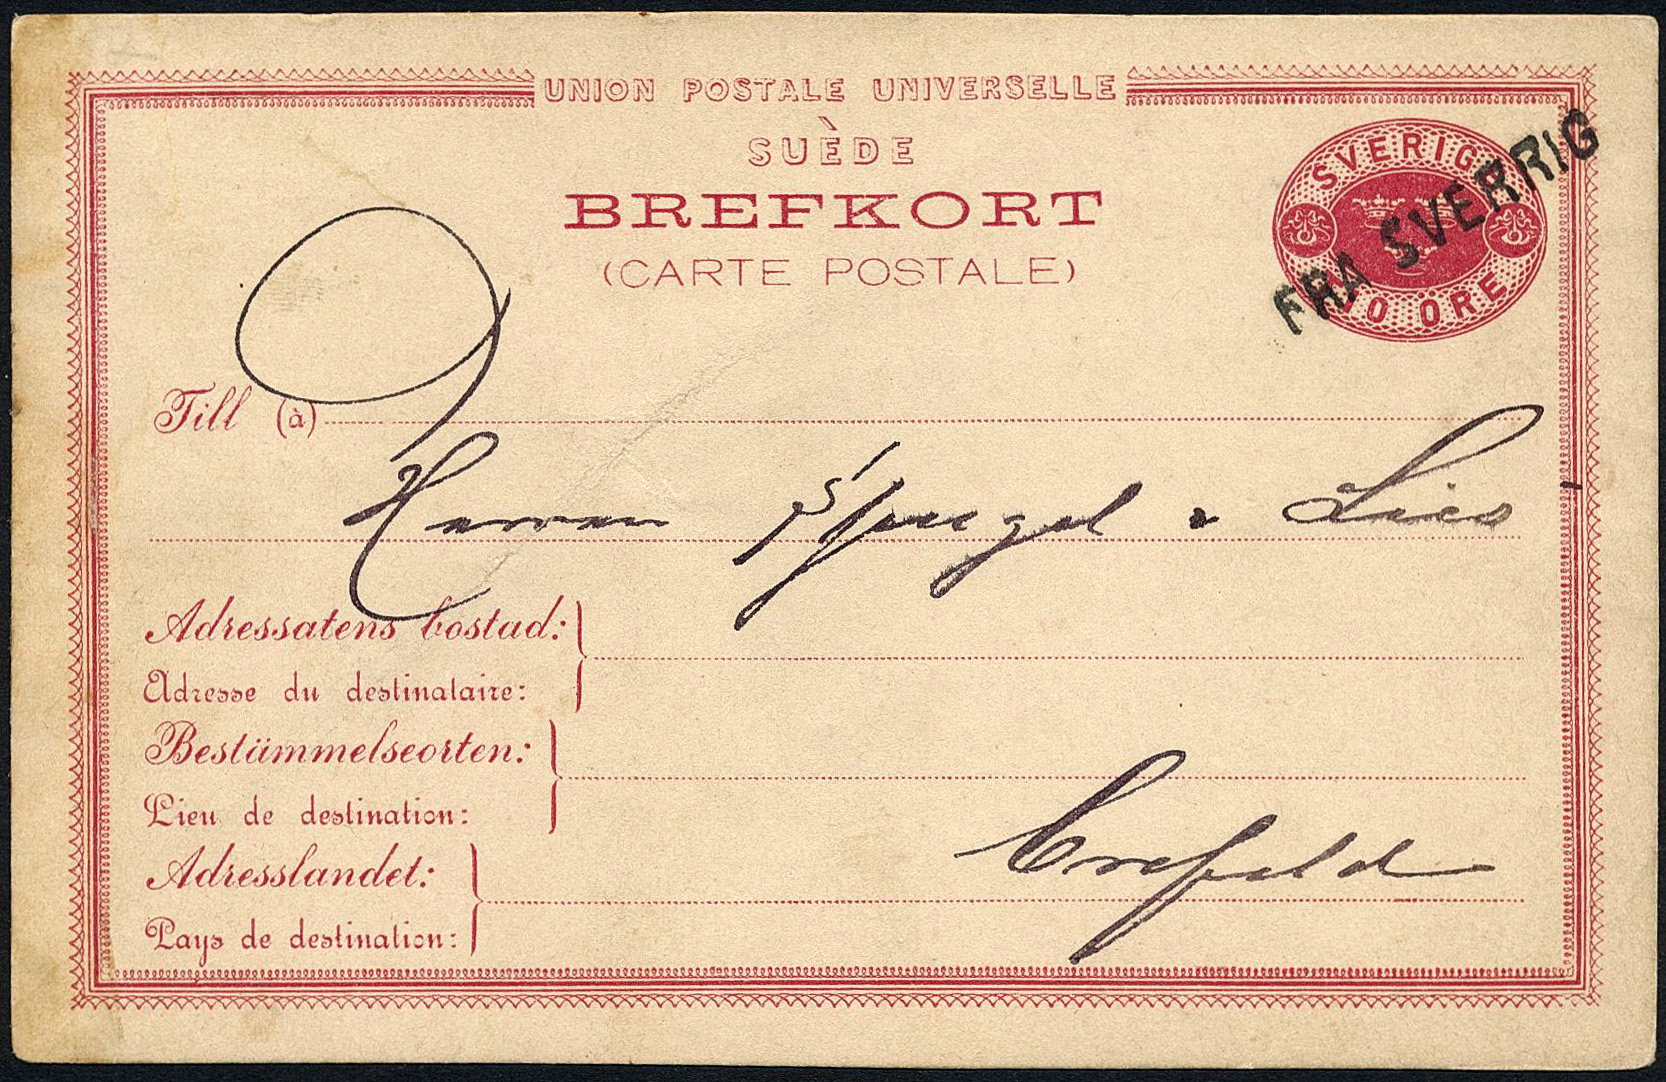 UNION POSTALE UNIVERSELLE
SUÈDE
BREFKORT
(CARTE POSTALE)
SVERIGE
TIO ÖRE
FRA SVERRIG
Till (à)
Herren & 
Adressatens bostad:
Adresse du destinataire:
Bestämmelseorten:
Lieu de destination:
Crefeld
Adresslandet:
Pays de destination: